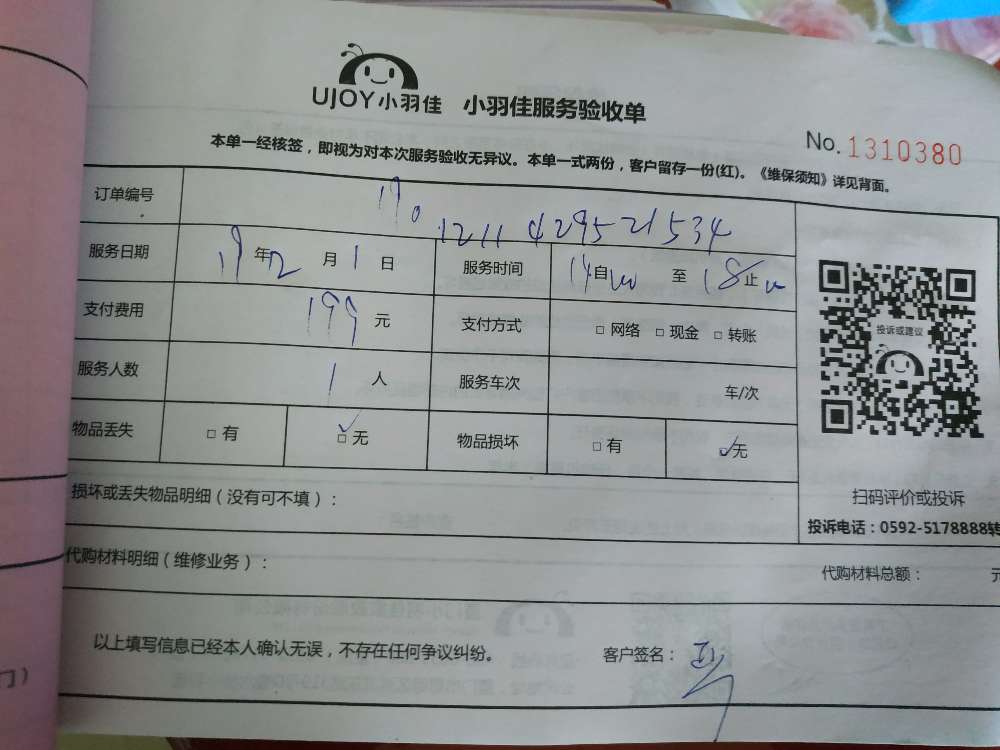 UJOY小羽佳 小羽佳服务验收单
No. 1310380
本单一经核签，即视为对本次服务验收无异议。本单一式两份，客户留存一份(红)。《维保须知》详见背面。
订单编号 190 1211 429521534
服务日期 19年12月1日 服务时间 14自00 至 18止
支付费用 199 元 支付方式 □ 网络 □ 现金 □ 转账
服务人数 1 人 服务车次 车/次
物品丢失 □ 有 ☑ 无 物品损坏 □ 有 ☑无
投诉或建议
损坏或丢失物品明细（没有可不填）：
扫码评价或投诉
投诉电话：0592-5178888转
代购材料明细（维修业务）：
代购材料总额： 元
以上填写信息已经本人确认无误，不存在任何争议纠纷。 客户签名：
门）